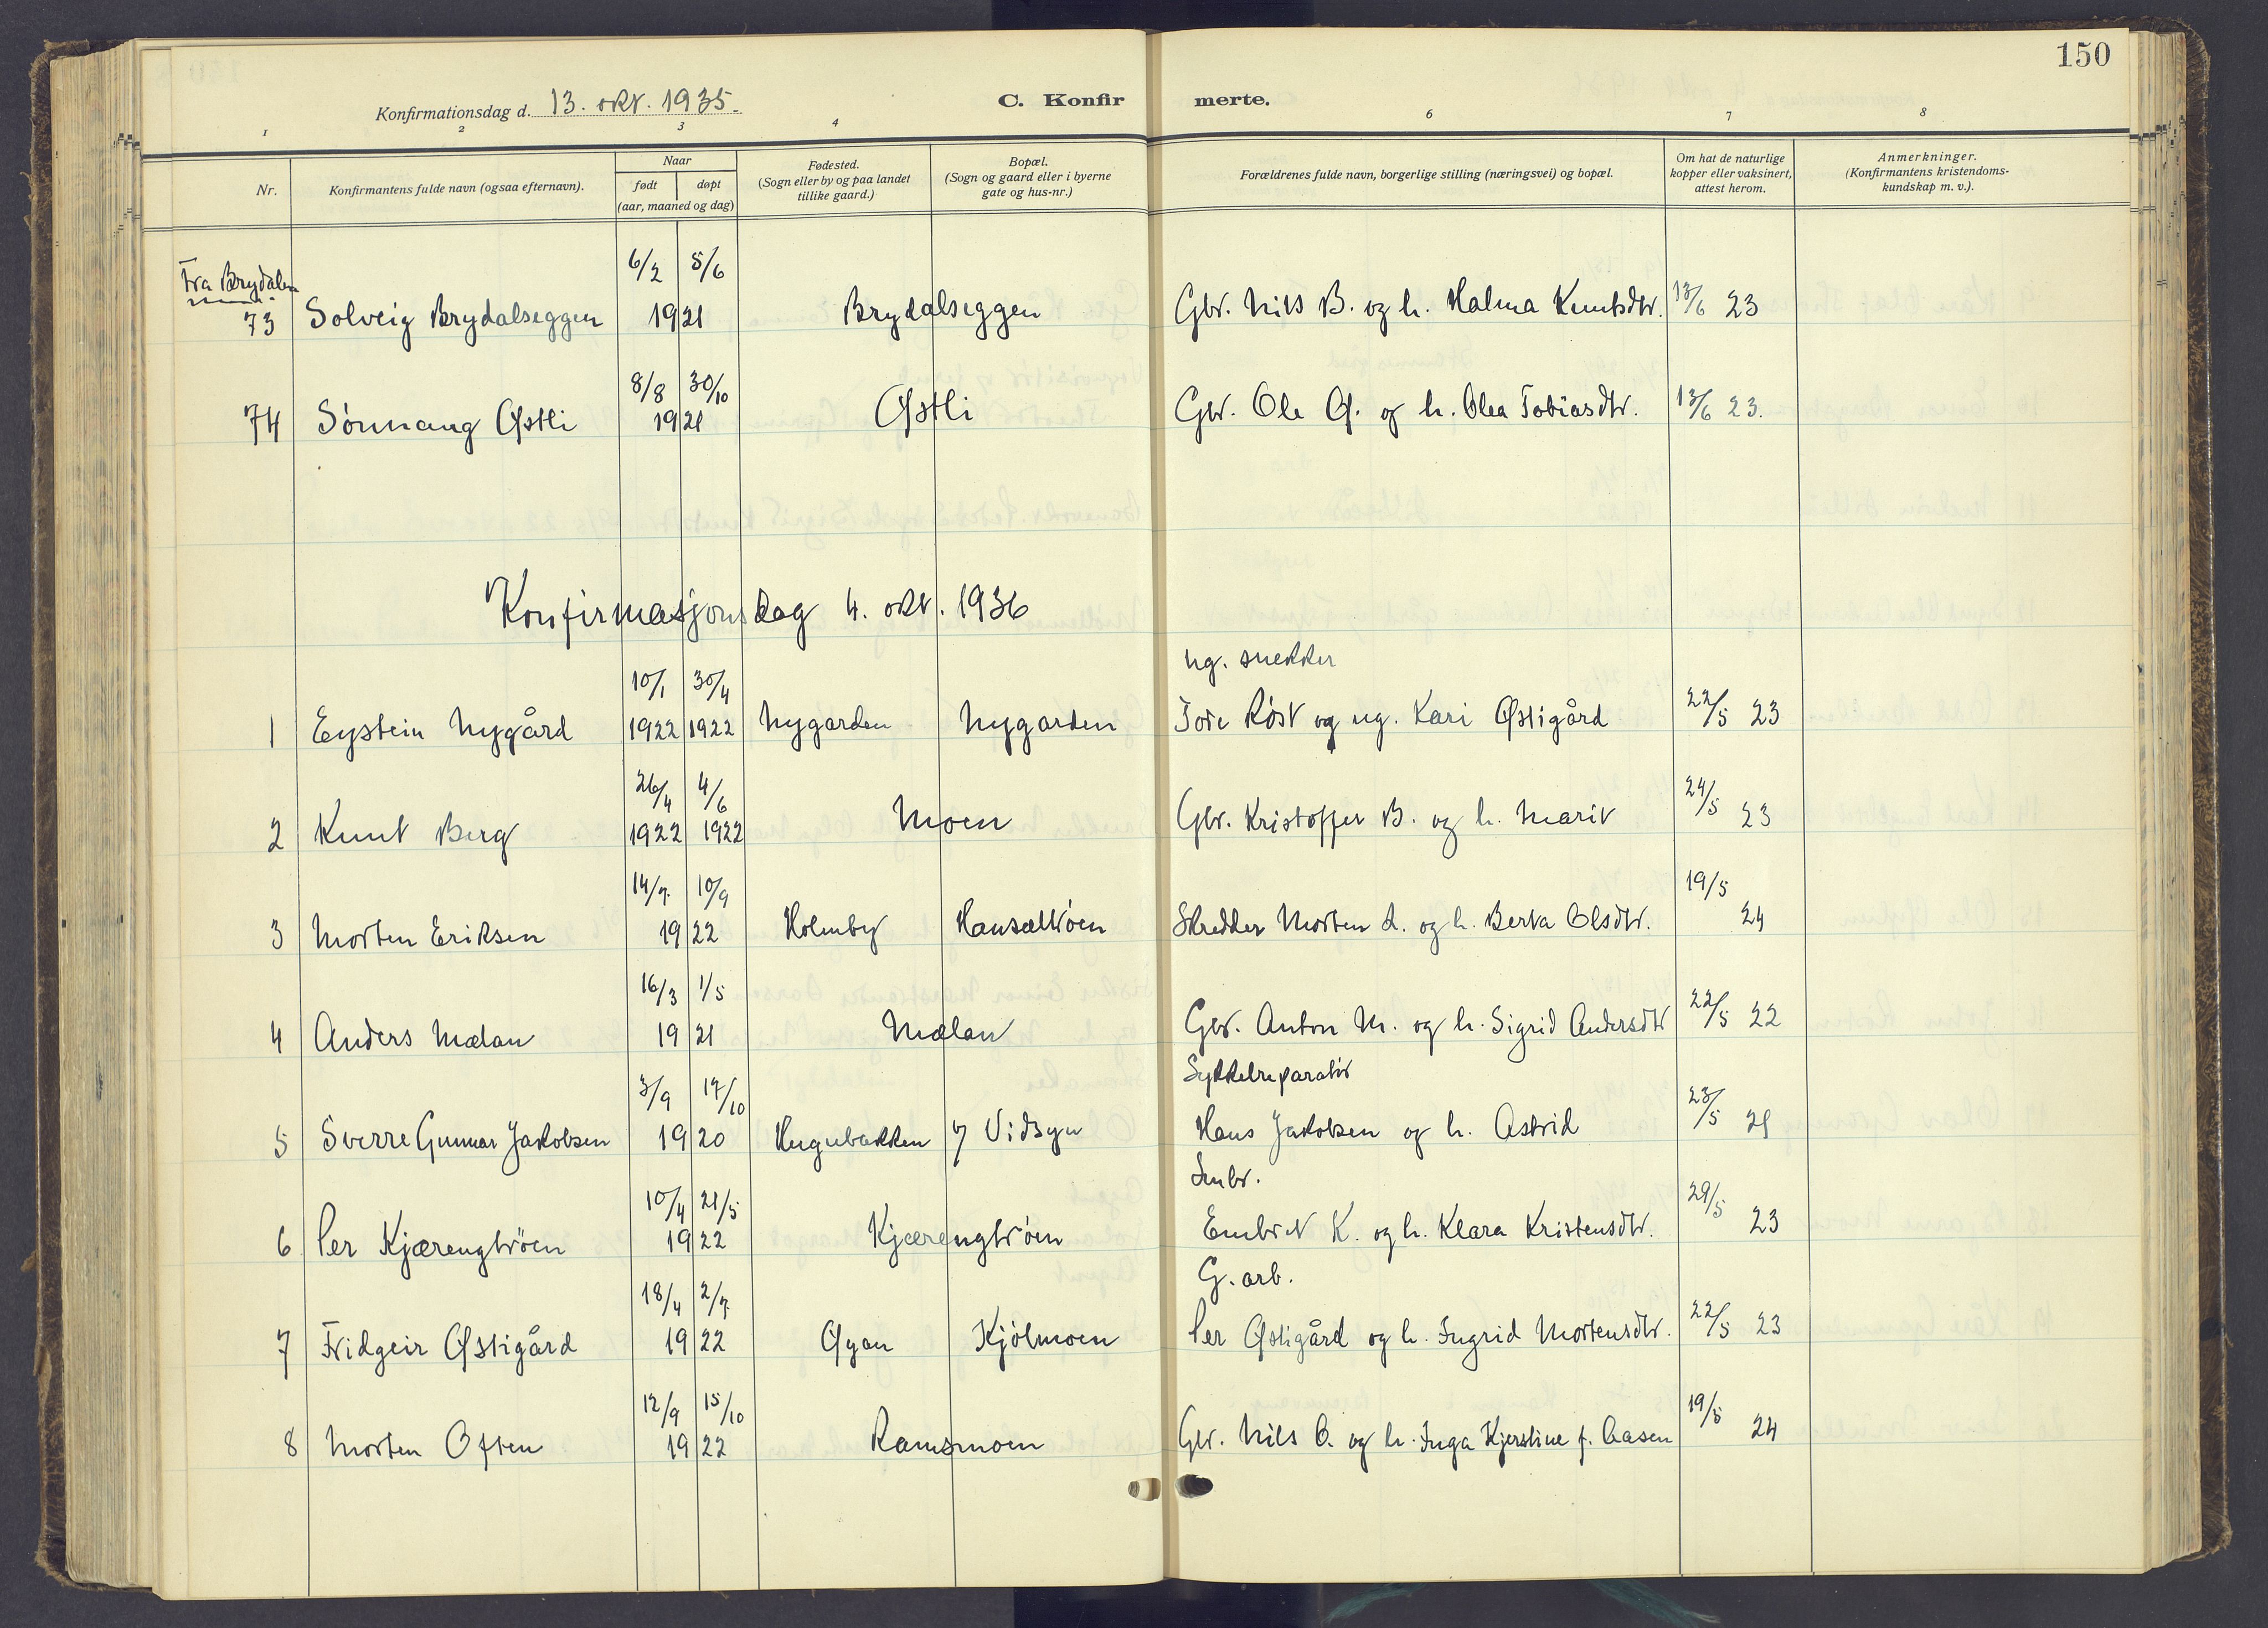 150
Konfirmationsdag d. 13. okt. 1935.
C. Konfirmerte.
1 2 3 4 6 7 8
Nr.
Konfirmantens fulde navn (ogsaa efternavn).
Naar
født døpt
(aar, maaned og dag)
Fødested.
(Sogn eller by og paa landet
tillike gaard.)
Bopæl.
(Sogn og gaard eller i byerne
gate og hus-nr.)
Forældrenes fulde navn, borgerlige stilling (næringsvei) og bopæl.
Om hat de naturlige
kopper eller vaksinert,
attest herom.
Anmerkninger.
(Konfirmantens kristendoms-
kundskap m. v.).
Fra Brydalen
6/2 5/6
73 Solveig Brydalseggen 1921 Brydalseggen Gbr. Nils B. og h. Halma Knutsdtr. 13/6 23
8/8 30/10
74 Sønnaug Østli 1921 Østli Gbr. Ole Ø. og h. Olea Tobiasdtr. 13/6 23.
Konfirmasjonsdag 4. okt. 1936
ug. snekker
10/1 30/4
1 Eystein Nygård 1922 1922 Nygarden Nygarden Tore Røst og ug. Kari Østigård 22/5 23
26/4 4/6
2 Knut Berg 1922 1922 Moen Gbr. Kristoffer B. og h. Marit 24/5 23
14/7. 10/9
3 Morten Eriksen 1922 Holmby Skredder Morten E. og h. Berta Olsdtr. 19/5 24
16/3 1/5
4 Anders Mælan 1921 Mælan Gbr. Anton M. og h. Sigrid Andersdtr 22/5 22
Sykkelreparatør
3/9 17/10
5 Sverre Gunnar Jakobsen 1920 Haugubakken Vidsyn Hans Jakobsen og h. Astrid 23/5 21
Smbr.
10/4 21/5
6 Per Kjærengtrøen 1922 Kjærengtrøen Embret K. og h. Klara Kristensdtr. 29/5 23
G. arb.
18/4 2/7.
7 Fridgeir Østigård 1922 Øyan Kjølmoen Per Østigård og h. Ingrid Mortensdtr. 22/5 23
12/9 15/10
8 Morten Often 1922 Ramsmoen Gbr. Nils O. og h. Inga Kjerstine f. Aasen 19/5 24